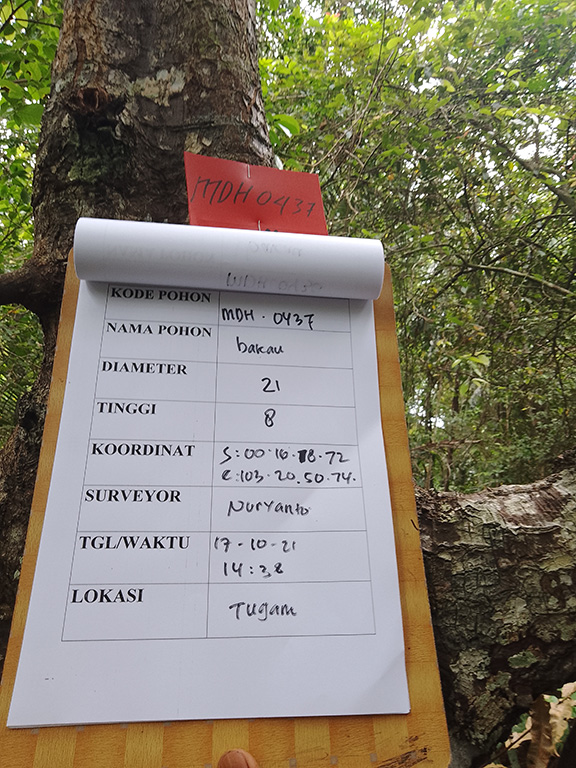 MDH 0437
KODE POHON MDH. 0437
NAMA POHON bakau
DIAMETER 21
TINGGI 8
KOORDINAT S:00.16.18.72
E:103.20.50.74.
SURVEYOR Nuryanto
TGL/WAKTU 17-10-21
14:38
LOKASI Tugam